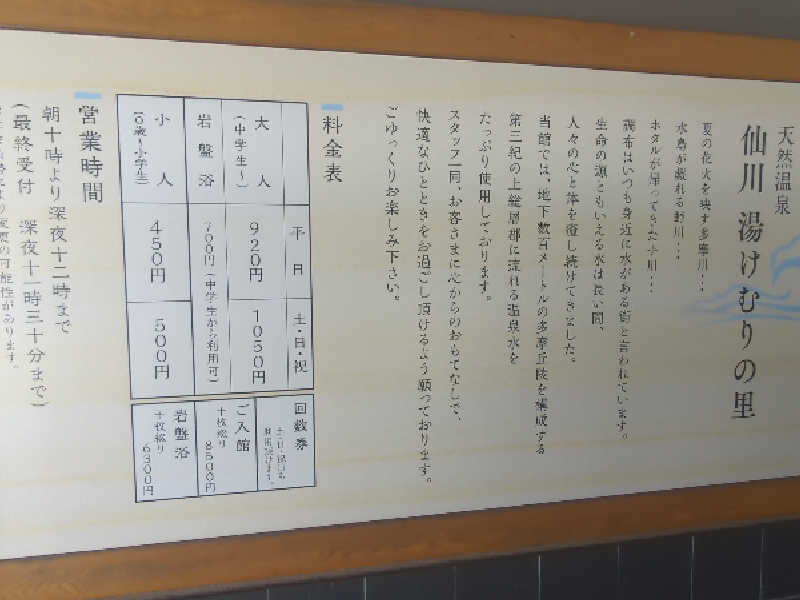 天然温泉
仙川 湯けむりの里
夏の花火を映す多摩川…
水鳥が戯れる野川…
ホタルが帰ってきた千川…
調布はいつも身近に水がある街と言われています。
生命の源ともいえる水は長い間、
人々の心と体を癒し続けてきました。
当館では、地下数百メートルの多摩丘陵を構成する
第三紀の上総層郡に流れる温泉水を
たっぷり使用しております。
スタッフ一同、お客さまに心からのおもてなしで、
快適なひとときをお過ごし頂けるよう願っております。
ごゆっくりお楽しみ下さい。
料金表
平日
土・日・祝
大人
(中学生〜)
920円
1050円
岩盤浴
700円(中学生から利用可)
小人
(0歳〜小学生)
450円
500円
回数券
ご入館
十枚綴り
8500円
岩盤浴
十枚綴り
6300円
営業時間
朝十時より深夜十二時まで
(最終受付 深夜十一時三十分まで)
変更の可能性があります。